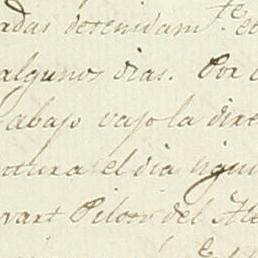 adas detenidam.te e
algunos dias. Por
abajo vajo la dire
ntura el dia sigui
wart Piloto del Ale